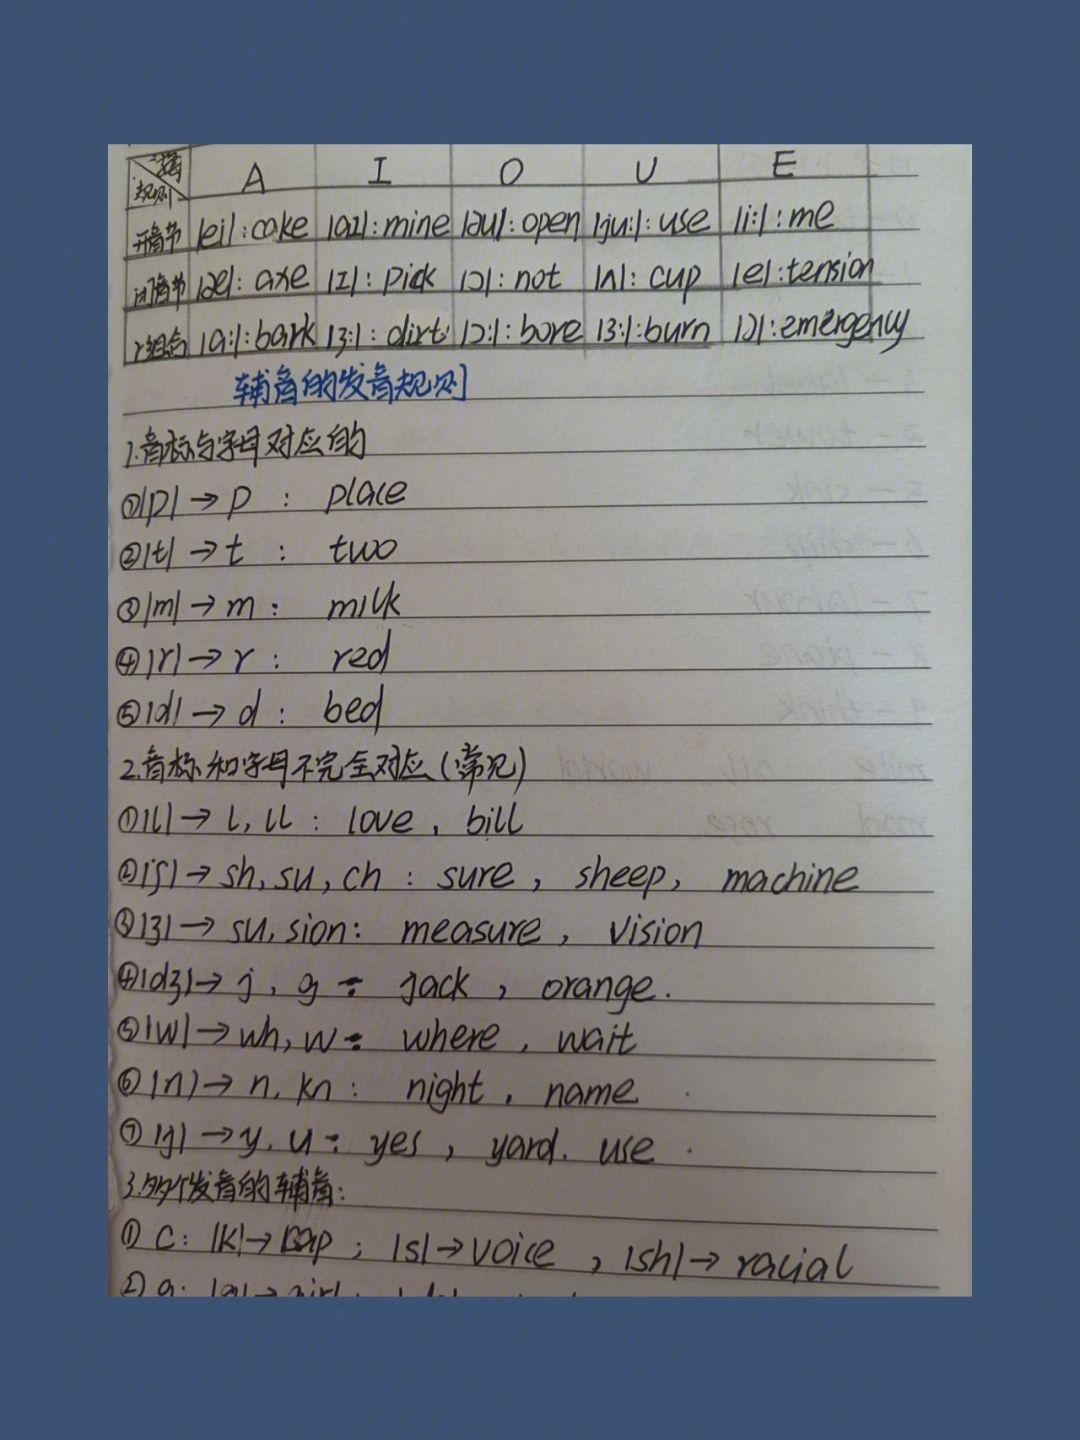 规则 A I O U E
开音节 |ei|: cake |aɪ|: mine |əu|: open |ju:|: use |i:|: me
闭音节 |æ|: axe |ɪ|: pick |ɔ|: not |ʌ|: cup |e|: tension
r组合 |a:|: bark |ɜ:|: dirt |ɔ:|: bore |ɜ:|: burn |ɔ|: emergency
辅音的发音规则
1.音标与字母对应的
①|p| → p : place
②|t| → t : two
③|m| → m : milk
④|r| → r : red
⑤|d| → d : bed
2.音标和字母不完全对应(常见)
①|l| → l, ll : love , bill
②|ʃ| → sh, su, ch : sure , sheep, machine
③|ʒ| → su, sion: measure , vision
④|dʒ| → j, g : jack , orange.
⑤|w| → wh, w : where , wait
⑥|n| → n, kn : night , name
⑦|j| → y, u : yes , yard. use
3.多个发音的辅音:
① c: |k| → cap ; |s| → voice , |sh| → racial
② g: |g| → girl;